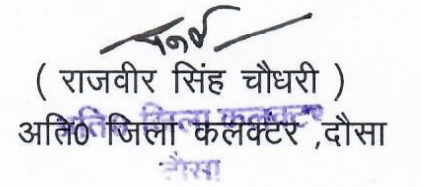 ( राजवीर सिंह चौधरी )
अति0 जिला कलक्टर ,दौसा
अतिo जिला कलक्टर
दौसा